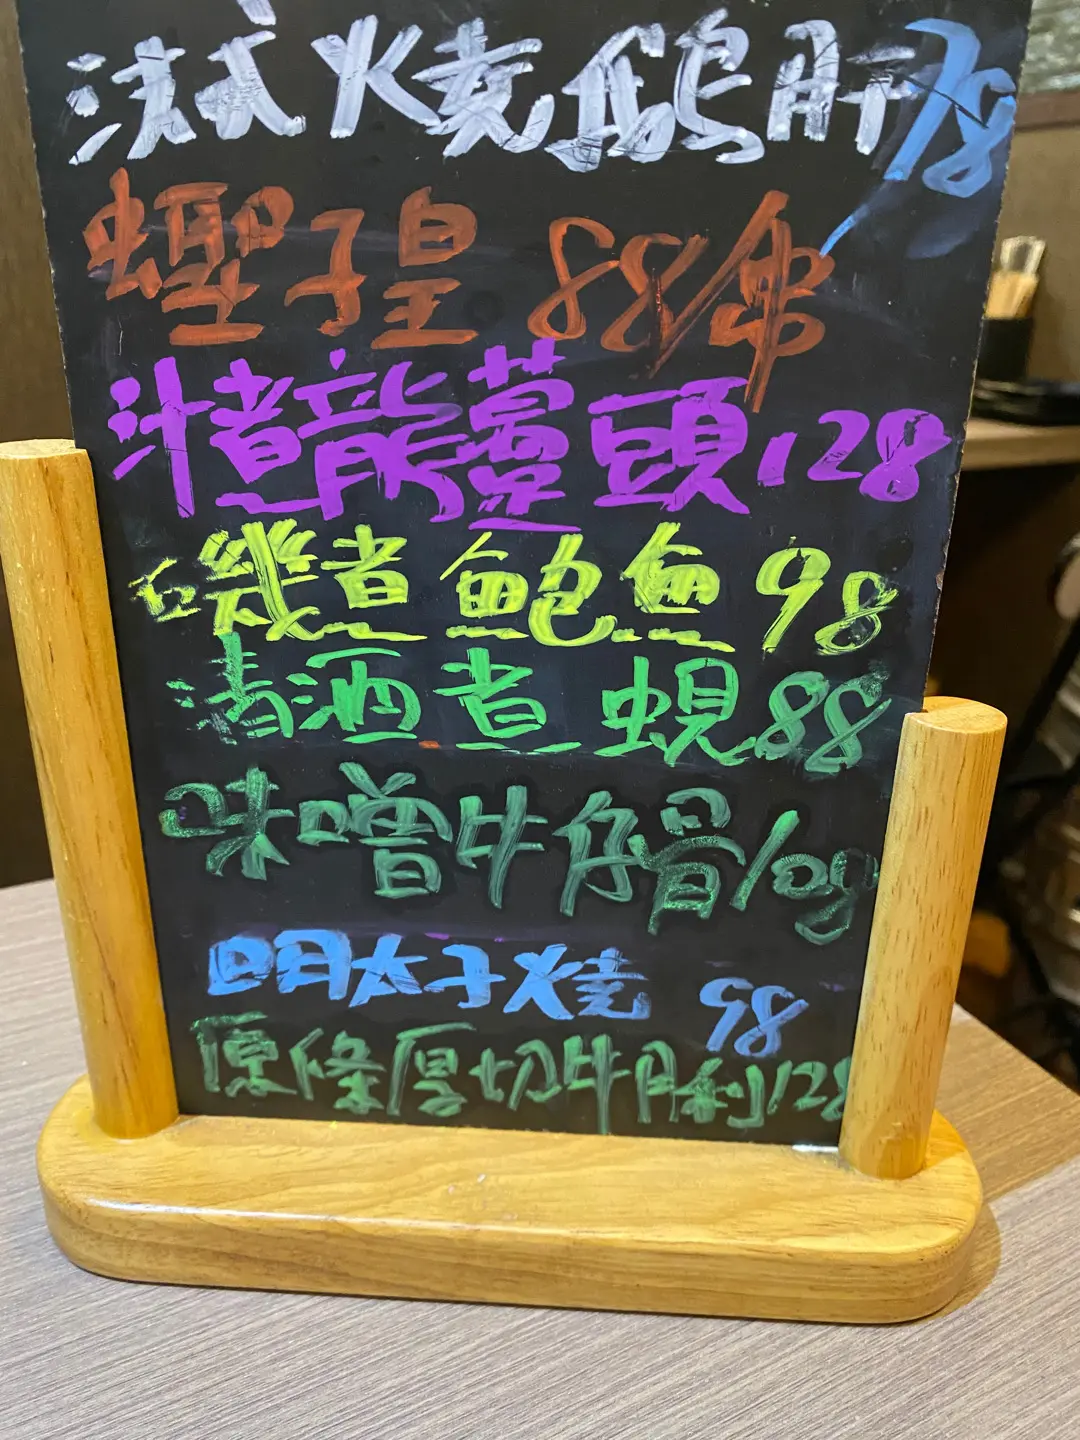 法式火燒鵝肝78
蟶子皇 88/串
汁煮龍躉頭128
磯煮鮑魚98
清酒煮蜆88
味噌牛仔骨108
明太子火燒 98
原條厚切牛脷128